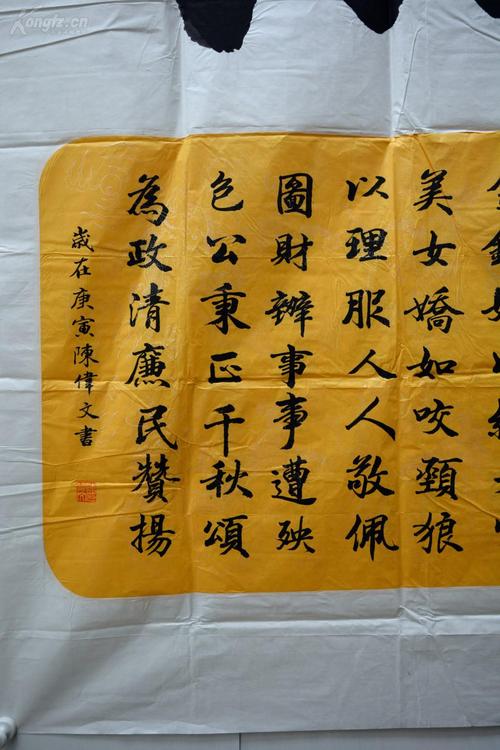 美女嬌如咬頸狼
以理服人人敬佩
圖財辦事事遭殃
包公秉正千秋頌
為政清廉民贊揚
歲在庚寅陳偉文書
Kongfz.cn